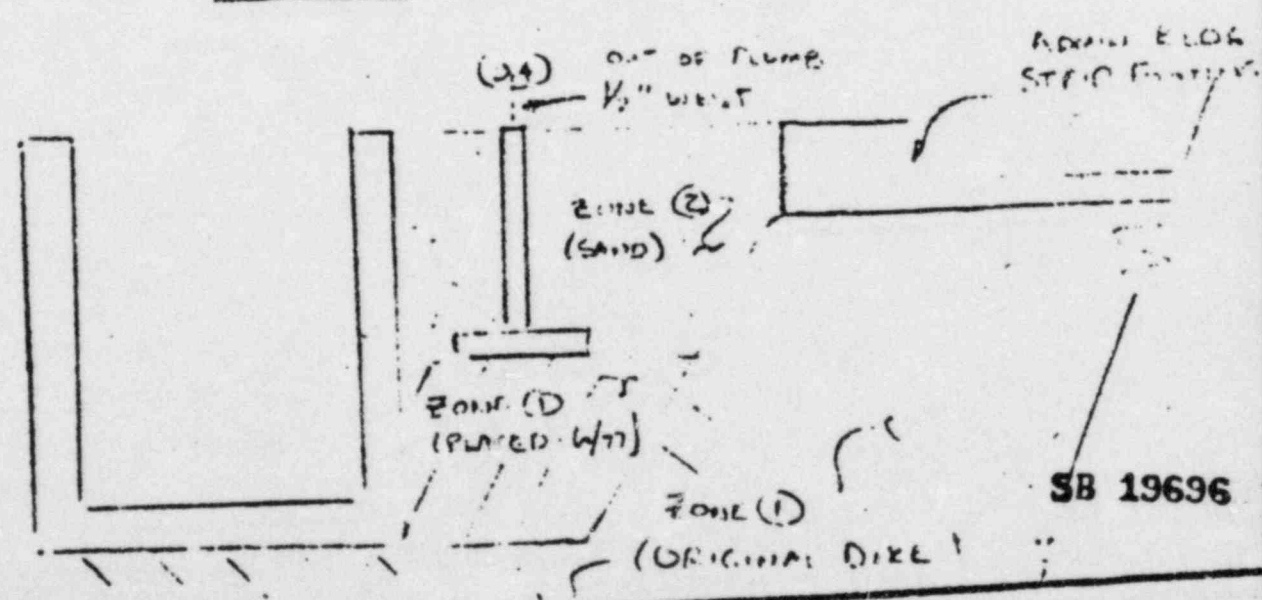 (3,4)
OUT OF PLUMB
1/2" WEST
ADMIN BLDG
STRIP FOOTING
ZONE (2)
(SAND)
ZONE (1)
(PLACED 6/77)
ZONE (1)
(ORIGINAL DIKE)
SB 19696